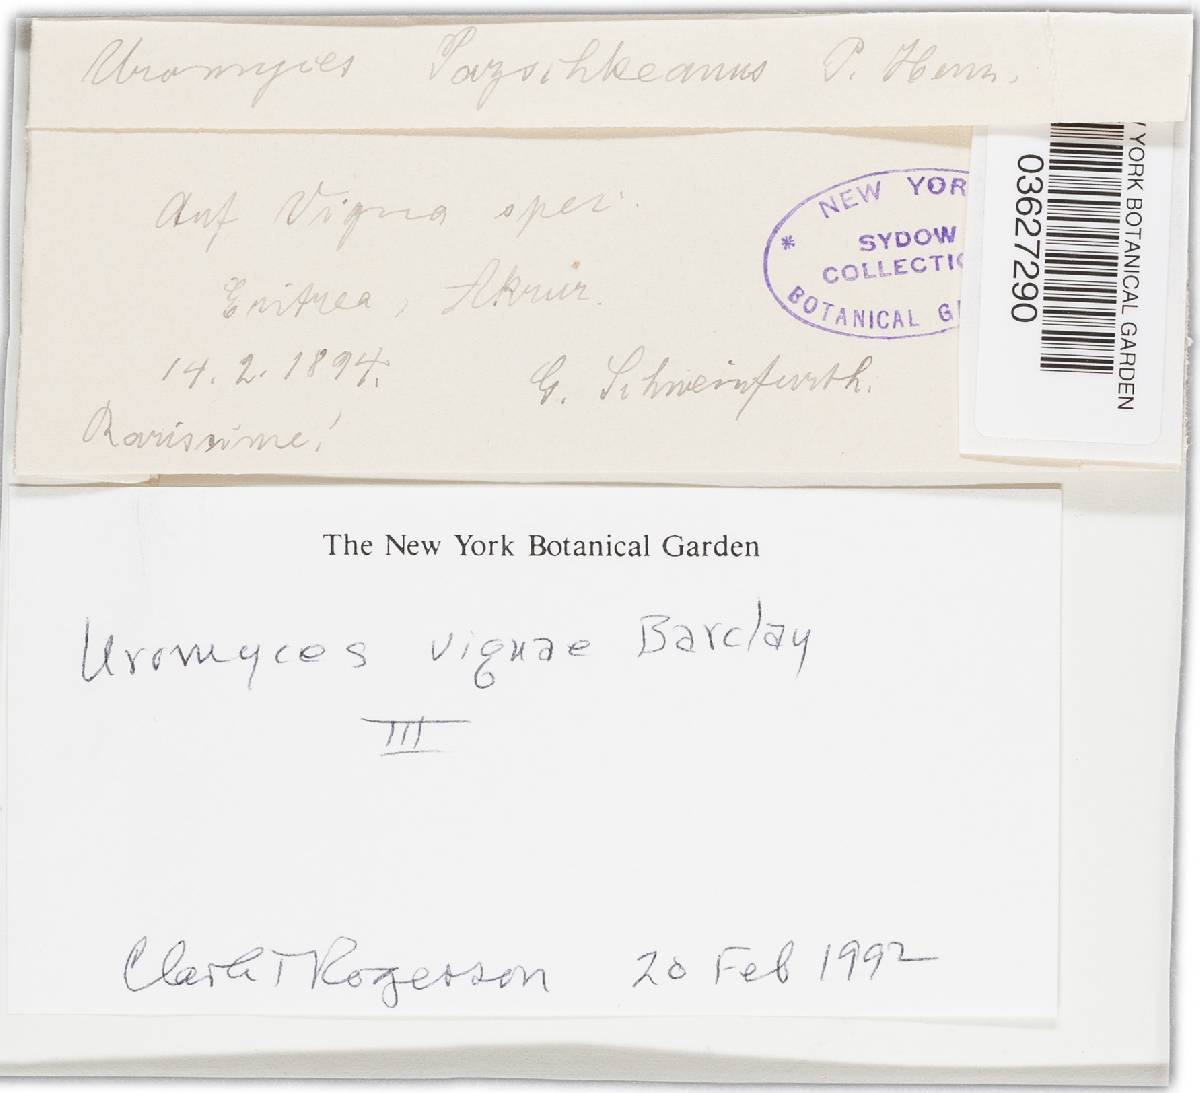 Uromyces Pazschkeanus P. Henn.
Auf Vigna spec.
Eritrea, Akrur.
14.2.1894.
G. Schweinfurth.
Rarissime!
NEW YOR
SYDOW
COLLECTIO
BOTANICAL G
YORK BOTANICAL GARDEN
03627290
The New York Botanical Garden
Uromyces vignae Barclay
III
Clark T Rogerson 20 Feb 1992